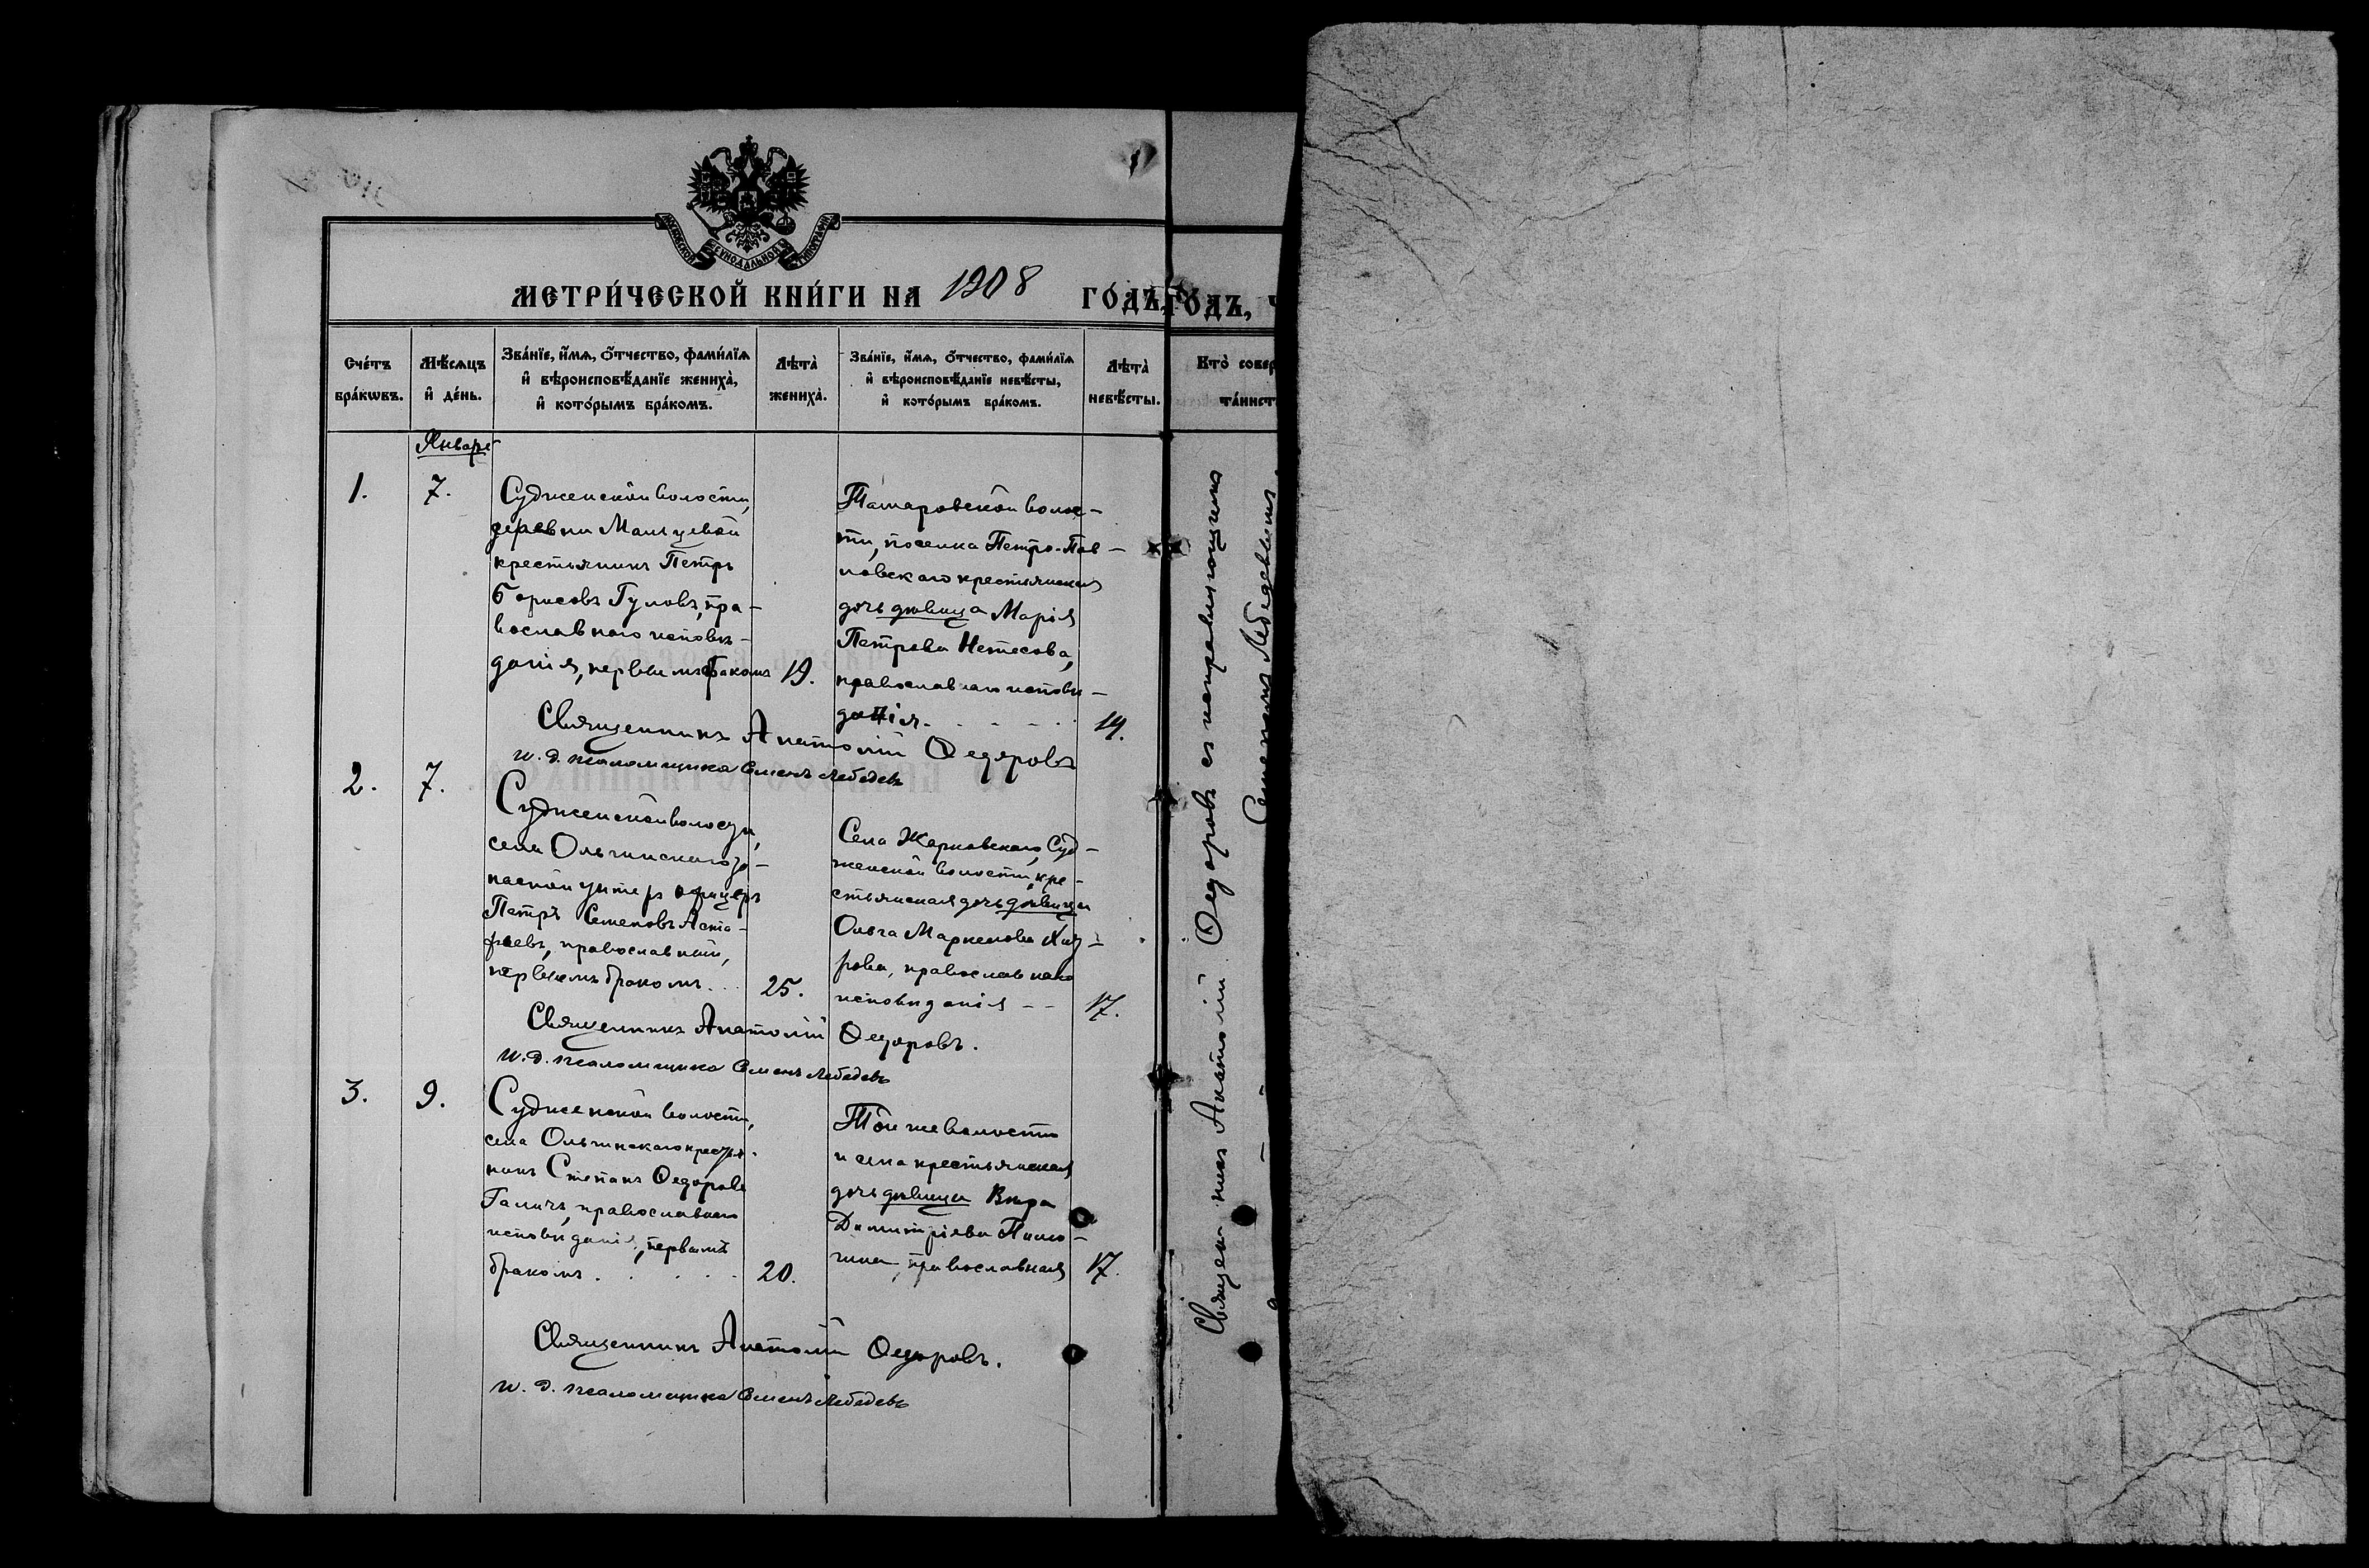 МОСКОВСКОЙ СѴНОДАЛЬНОЙ ТИПОГРАФІИ
МЕТРИ́ЧЕСКОЙ КНИ́ГИ НА 1908 ГО́ДЪ,
ГО́ДЪ, Ч
Сче́тъ бра́кѡвъ.
Мѣ́сѧцъ и҆ де́нь.
Зва́нїе, и҆́мѧ, ѻ҆́тчество, фами́лїѧ
и҆ вѣроисповѣ́данїе жениха̀,
и҆ кото́рымъ бра́комъ.
Лѣта̀ жениха̀.
Зва́нїе, и҆́мѧ, ѻ҆́тчество, фами́лїѧ
и҆ вѣроисповѣ́данїе невѣ́сты,
и҆ кото́рымъ бра́комъ.
Лѣта̀ невѣ́сты.
Кто̀ совер
та́инст
Январь
1.
7.
Судженской волости,
деревни Мальцевой
крестьянинъ Петръ
Борисовъ Гуловъ, пра-
вославнаго исповѣ-
данія, первымъ бракомъ
19.
Тамаровской волос-
ти, поселка Петро-Пав-
ловскаго крестьянская
дочь дѣвица Марія
Петрова Нетесова,
православнаго исповѣ-
данія.
19.
Священникъ Анатолій Ѳедоровъ
и. д. псаломщика Семенъ Лебедевъ
2.
7.
Судженской волости,
села Ольгинскаго за-
пасной унтеръ офицеръ
Петръ Семеновъ Аста-
фьевъ, православный,
первымъ бракомъ...
25.
Села Жарковскаго, Суд-
женской волости, кре-
стьянская дочь дѣвица
Ольга Маркелова
рова, православнаго
исповѣданія - -
17.
Священникъ Анатолій Ѳедоровъ.
и. д. псаломщика Семенъ Лебедевъ
3.
9.
Судженской волости,
села Ольгинскаго крестья-
нинъ Степанъ Ѳедоровъ
Галичъ, православнаго
исповѣданія, первымъ
бракомъ . . . . .
20.
Той же волости
и села крестьянская
дочь дѣвица Вѣра
Димитріева
православная
17.
Священникъ Анатолій Ѳедоровъ.
и. д. псаломщика Семенъ Лебедевъ
Священникъ Анатолій Ѳедоровъ съ исправляющимъ
Семеномъ Лебедевымъ